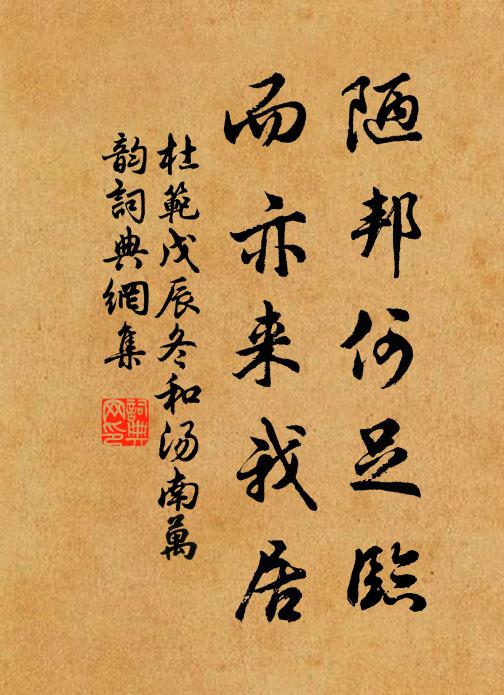 陋邦何足臨
而亦来我居
杜範戊辰冬和湯南萬
韵詞典網集
詞典網印